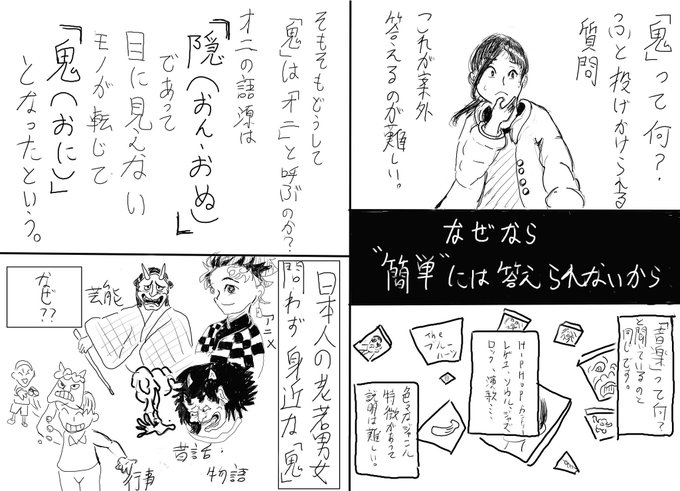 「鬼」って何？
ふと投げかけられる
質問
これが案外
答えるのが難しい。
なぜなら
"簡単"には答えられないから
「音楽」って何？
と聞いているのと
同じである。
HipHopから
レゲエ、ソウル、ジャズ
ロック、演歌…、
The
ブルー
ハーツ
色々なジャンル
特徴があって
説明は難しい。
そもそもどうして
「鬼」は「オニ」と呼ぶのか？
オニの語源は
「隠（おん・おぬ）」
であって
目に見えない
モノが転じて
「鬼（おに）」
となったという。
日本人の老若男女
問わず身近な「鬼」
アニメ
芸能
なぜ??
昔話・
物語
行事